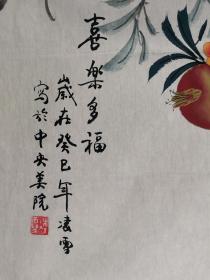 喜樂多福
歲在癸巳年凌雪
寫於中央美院